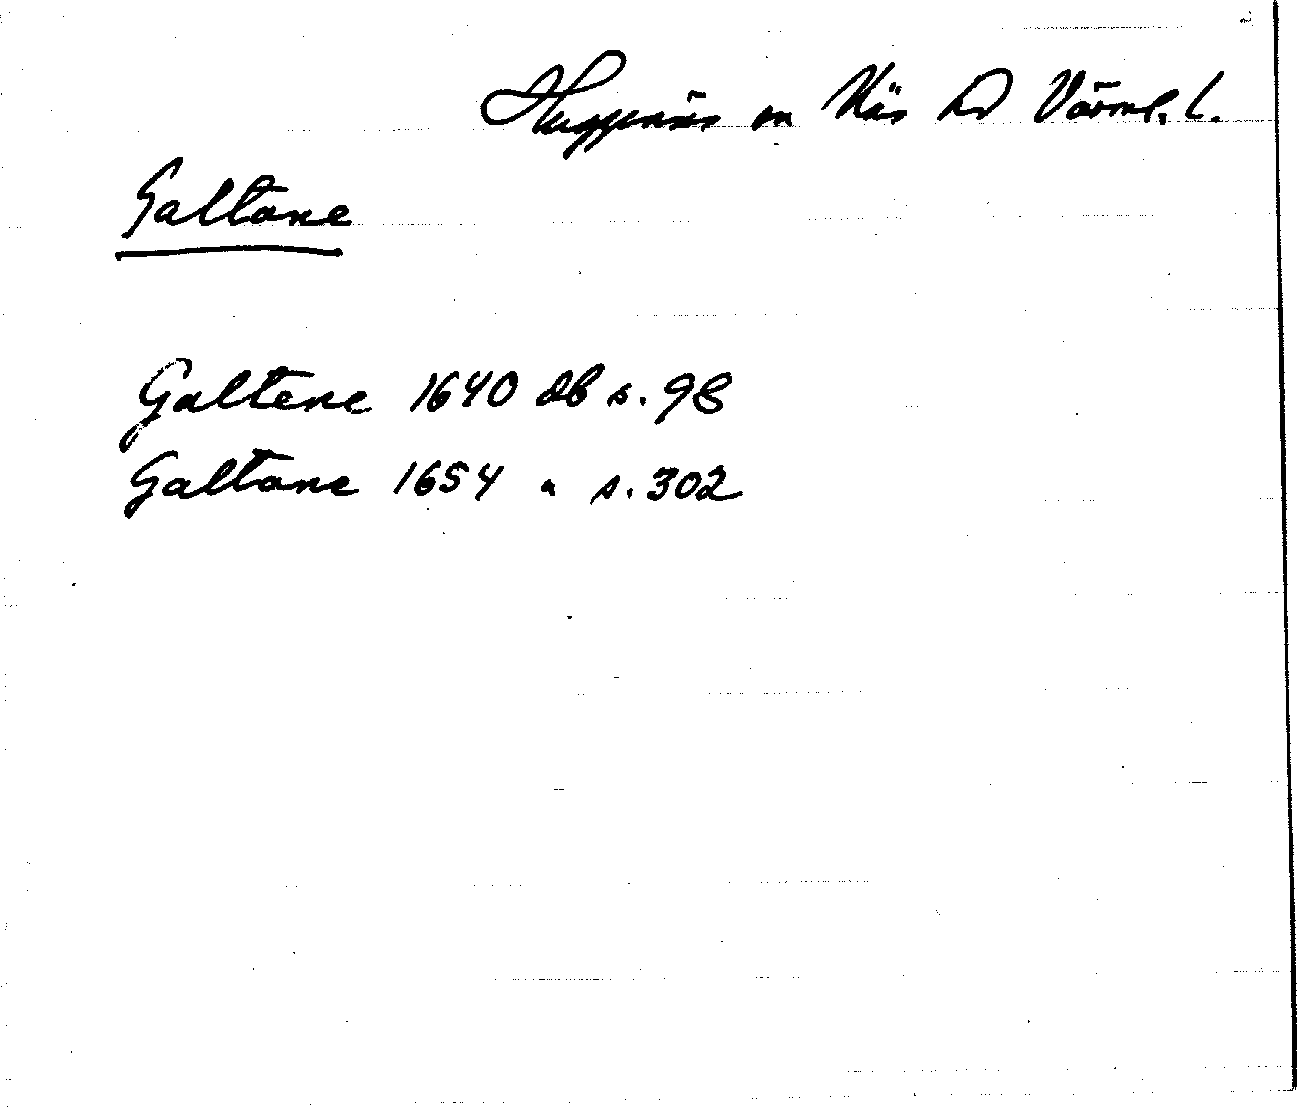 Huggenäs sn Näs hd Värml. l.
Galtane
Galtene 1640 db s. 98
Galtane 1654 " s. 302